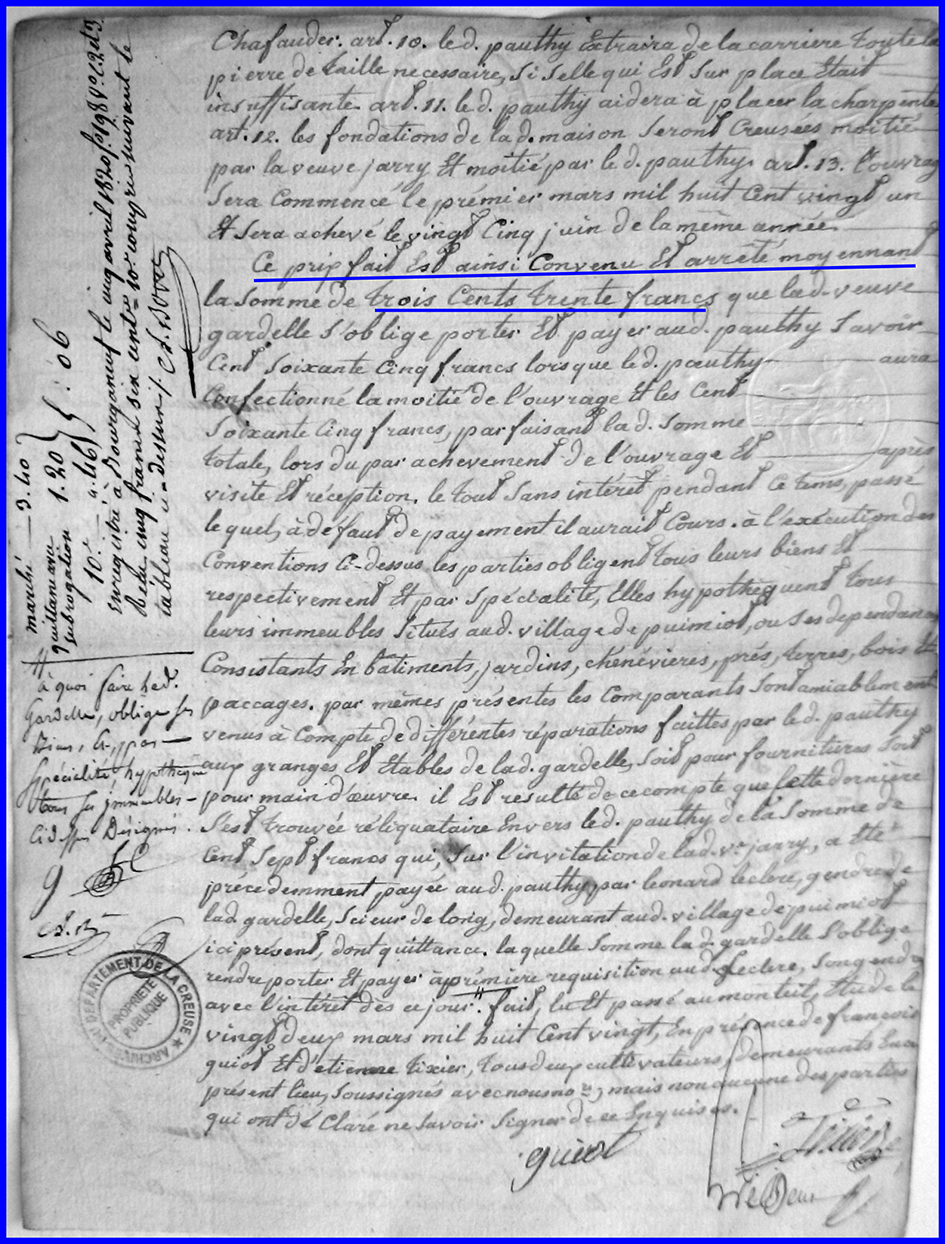 Chafauder. art. 10. le d. pauthy Extraira de la carriere toute la
pierre de taille necessaire, si selle qui Est sur place Etait
insuffisante. art. 11. le d. pauthy aidera à placer la charpente
art. 12. les fondations de lad. maison seront Creusées moitié
par la veuve jarry Et moitié par le d. pauthy. art. 13. l'ouvrag
sera Commencé le prémier mars mil huit Cent vingt un
Et sera achevé le vingt Cinq juin de la même année.
Ce prix fait Est ainsi Convenu Et arrété moyennant
la somme de trois Cents trente francs que lad. veuve
gardelle s'oblige porter Et payer aud. pauthy savoir
Cent soixante Cinq francs lorsque led. pauthy aura
Confectionné la moitié de l'ouvrage Et les Cent
soixante Cinq francs, parfaisant la d. somme
totale, lors du parachevement de l'ouvrage Et après
visite Et réception. le tout sans intérêt pendant Ce tems, passé
lequel, à défaut de payement il aurait Cours. à l'exécution des
Conventions Ci-dessus les parties obligent tous leurs biens Et
respectivement Et par spécialité, Elles hypothequent tous
leurs immeubles situés aud. village de puimiot, ou ses dependances
Consistants En bâtiments, jardins, chénévieres, prés, terres, bois Et
paccages. par mêmes présentes les Comparants sont amiablement
venus à Compte de différentes réparations faittes par le d. pauthy
aux granges Et Etables de la d. gardelle, soit pour fournitures soit
pour main d'œuvre. il Est resulté de ce compte que Cette dernière
s'est trouvée réliquataire Envers le d. pauthy de la somme de
Cent sept francs qui, sur l'invitation de lad. ve. jarry, a été
précédemment payée aud. pauthy, par leonard leclerc, gendre de
lad. gardelle, scieur de long, demeurant aud. village de puimiot
ici présent, dont quittance. laquelle somme la d. gardelle s'oblige
rendre porter Et payer à prémière requisition aud. leclerc, son gendre
avec l'intérêt dès ce jour. fait, lu Et passé au monteil, Etude le
vingt deux mars mil huit Cent vingt, En présence de francois
guiot Et d'etienne tixier, tous deux cultivateurs, demeurants En ce
présent lieu, soussignés avec nous no.re, mais non aucune des parties
qui ont dé Claré ne savoir signer de ce Enquises.
guiot
marché — 3.40
quittance
subrogation 1.20
10.e
: 46
5 : 06
Enregistré à Bourganeuf le cinq avril 1820 f.
Reçu cinq francs six cent. 10.e compris suivant le
tableau ci-dessus
à quoi faire lad.
Gardelle, oblige ses
Biens, Et, par
spécialité hypotheque
tous ses immeubles
ci dessus Désignés.
g
DEPARTEMENT DE LA CREUSE
PROPRIÉTÉ
PUBLIQUE